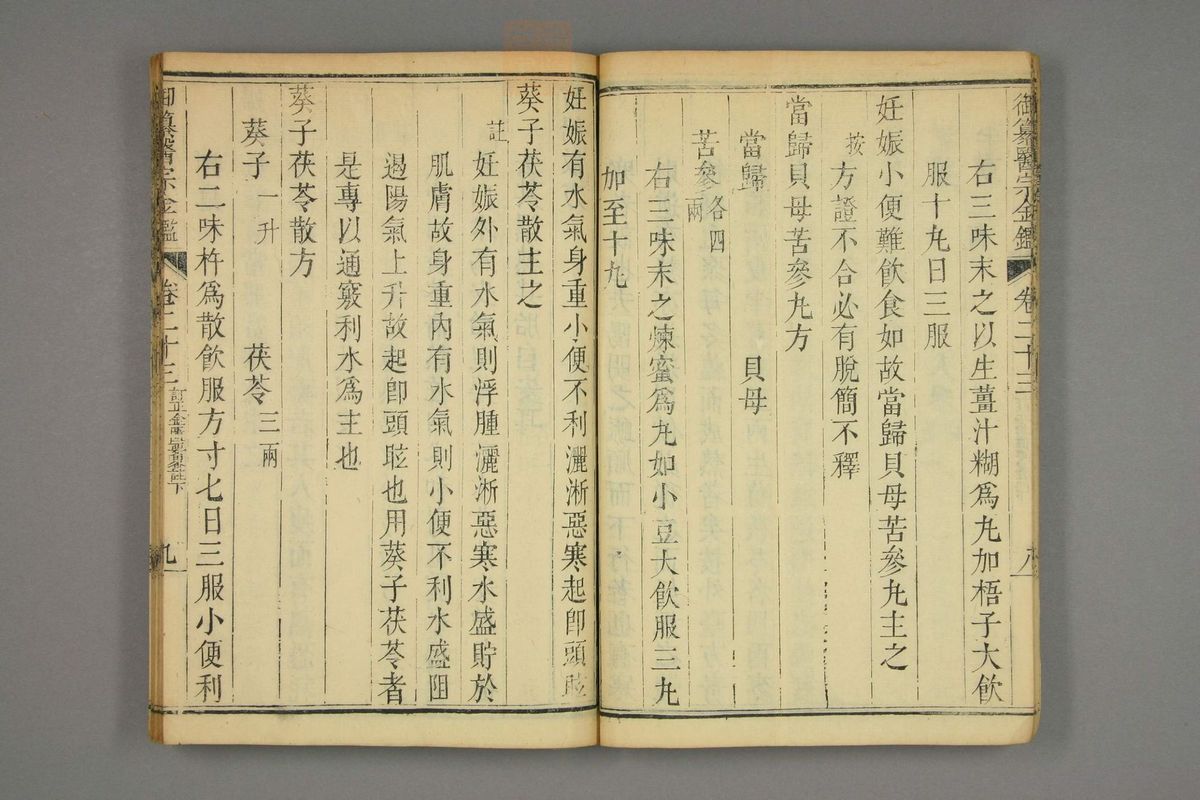 御纂醫宗金鑑 卷二十三 八
右三味末之以生薑汁糊爲丸加梧子大飲
服十丸日三服
妊娠小便難飲食如故當歸貝母苦參丸主之
按方證不合必有脫簡不釋
當歸貝母苦參丸方
當歸 貝母
苦參各四兩
右三味末之煉蜜爲丸如小豆大飲服三丸
加至十丸
妊娠有水氣身重小便不利灑淅惡寒起卽頭眩
葵子茯苓散主之
註妊娠外有水氣則浮腫灑淅惡寒水盛貯於
肌膚故身重內有水氣則小便不利水盛阻
遏陽氣上升故起卽頭眩也用葵子茯苓者
是專以通竅利水爲主也
葵子茯苓散方
葵子一升 茯苓三兩
右二味杵爲散飲服方寸匕日三服小便利
御纂醫宗金鑑 卷二十三 九